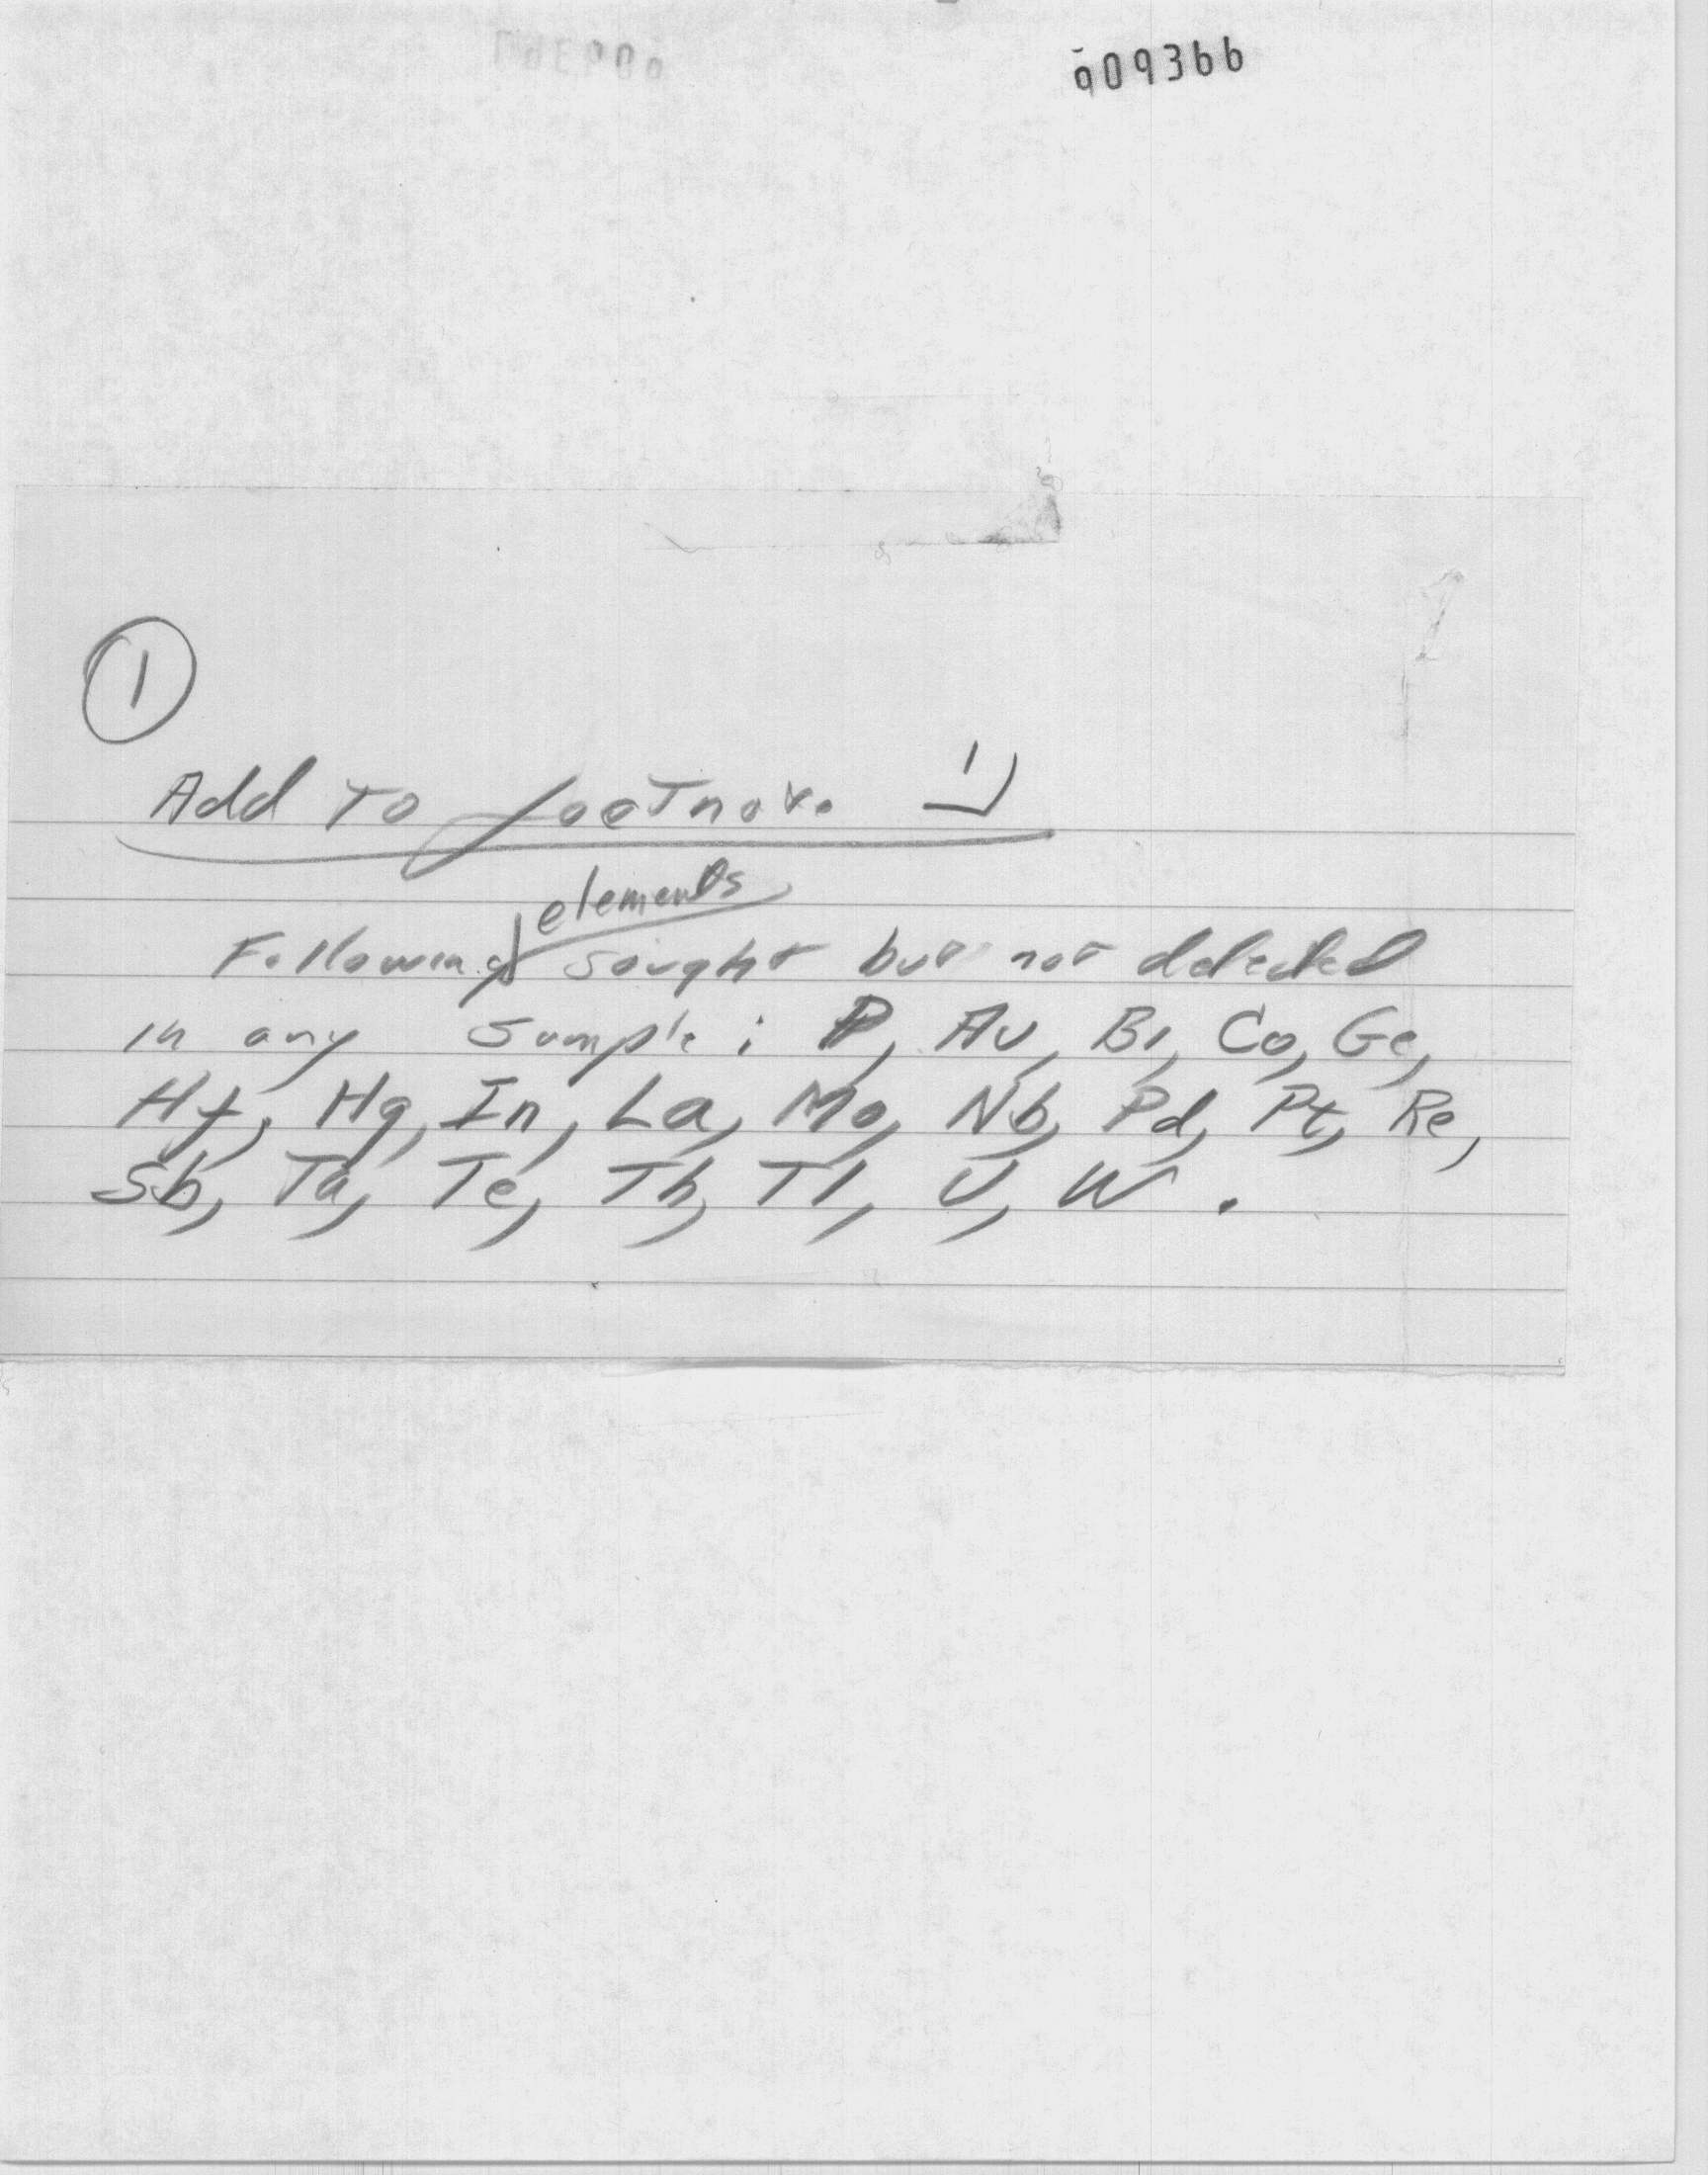 009366
1
Add To footnote 1)
elements
Following sought but not detected
in any sample: P, Au, Bi, Co, Ge,
Hf, Hg, In, La, Mo, Nb, Pd, Pt, Re,
Sb, Ta, Te, Th, Tl, U, W.